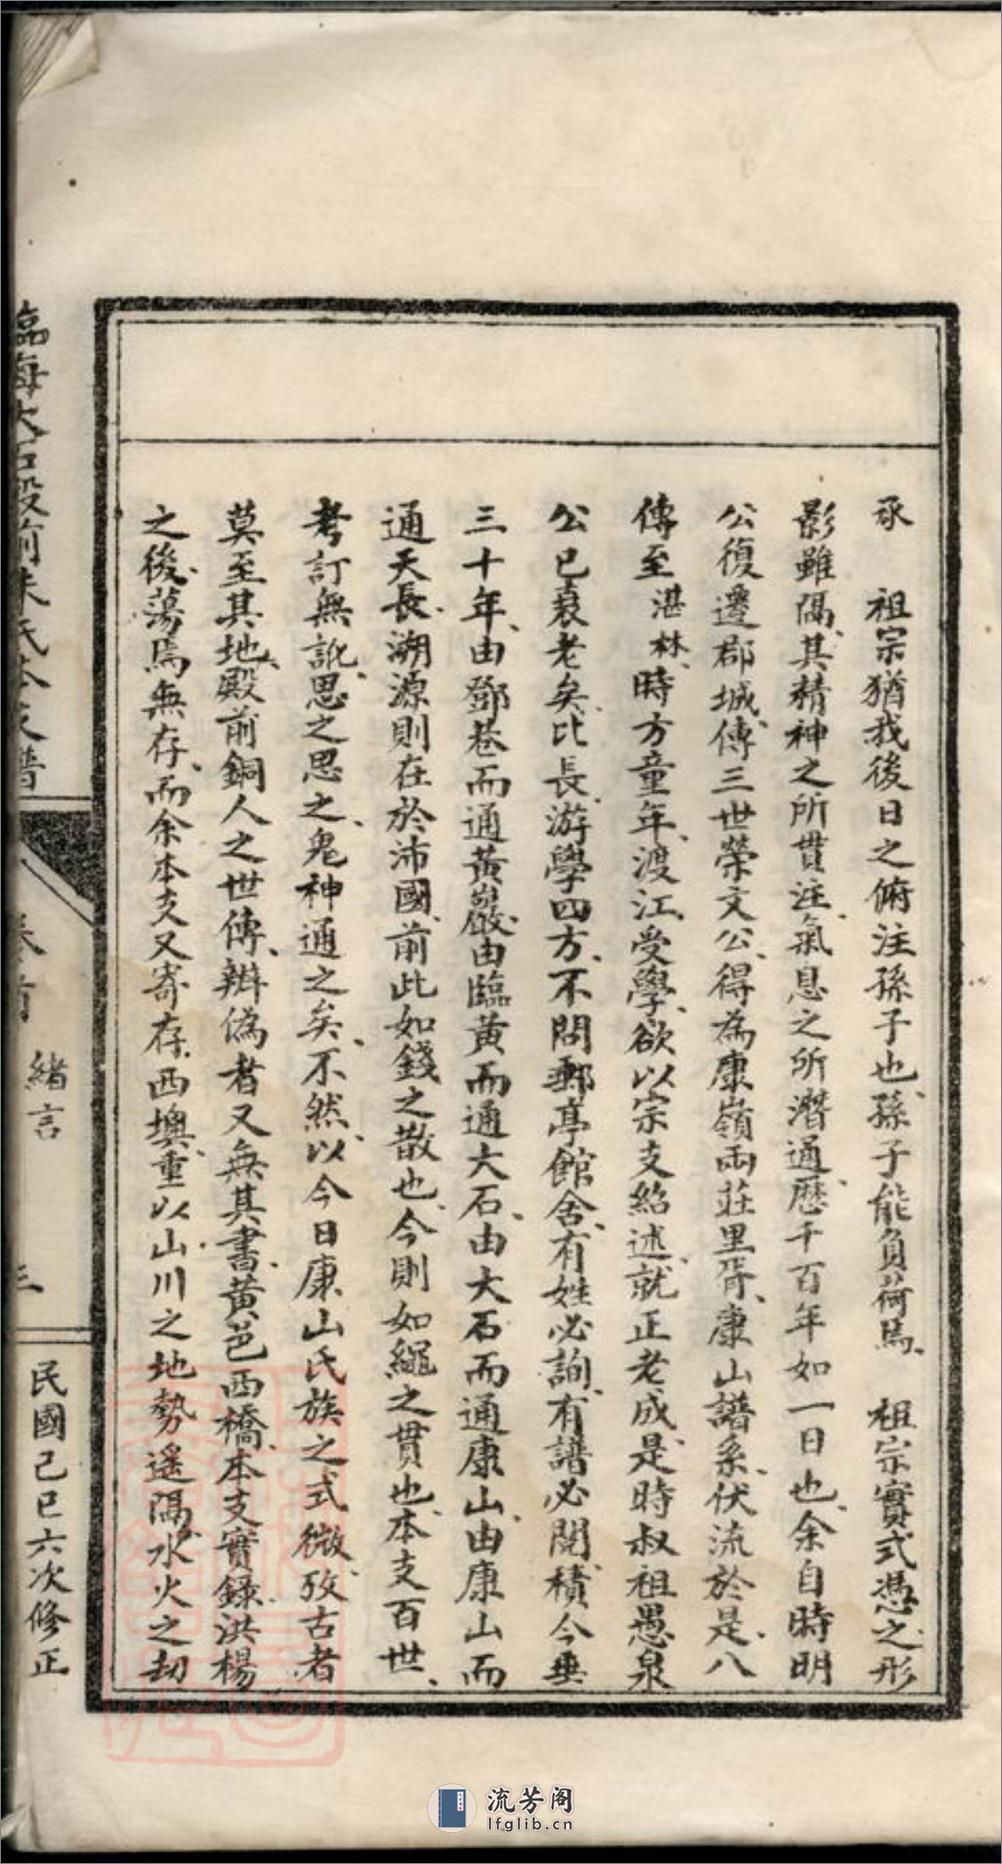 承　祖宗猶我後日之俯注孫子也、孫子能負荷焉、　祖宗實式憑之、形
影雖隔、其精神之所貫注、氣息之所潛通、歷千百年如一日也、余自時明
公復遷郡城、傳三世榮文公、得為康嶺兩莊里胥、康山譜系、伏流於是、八
傳至湛林、時方童年、渡江、受學、欲以宗支紹述、就正老成、是時叔祖愚泉
公已衰老矣、比長、游學四方、不問郵亭館舍、有姓必詢、有譜必閱、積今垂
三十年、由鄧巷而通黃巖、由臨黃而通大石、由大石而通康山、由康山而
通天長、溯源則在於沛國、前此如錢之散也、今則如繩之貫也、本支百世、
考訂無訛、思之思之、鬼神通之矣、不然、以今日康山氏族之式微、攷古者
莫至其地、殿前銅人之世傳、辨偽者又無其書、黃邑西橋、本支實錄、洪楊
之後、蕩焉無存、而余本支又寄存西墺、重以山川之地勢遥隔、水火之劫
臨海大石殿前朱氏本支譜
卷首
緒言
三
民國己巳六次修正
流芳阁
lfglib.cn